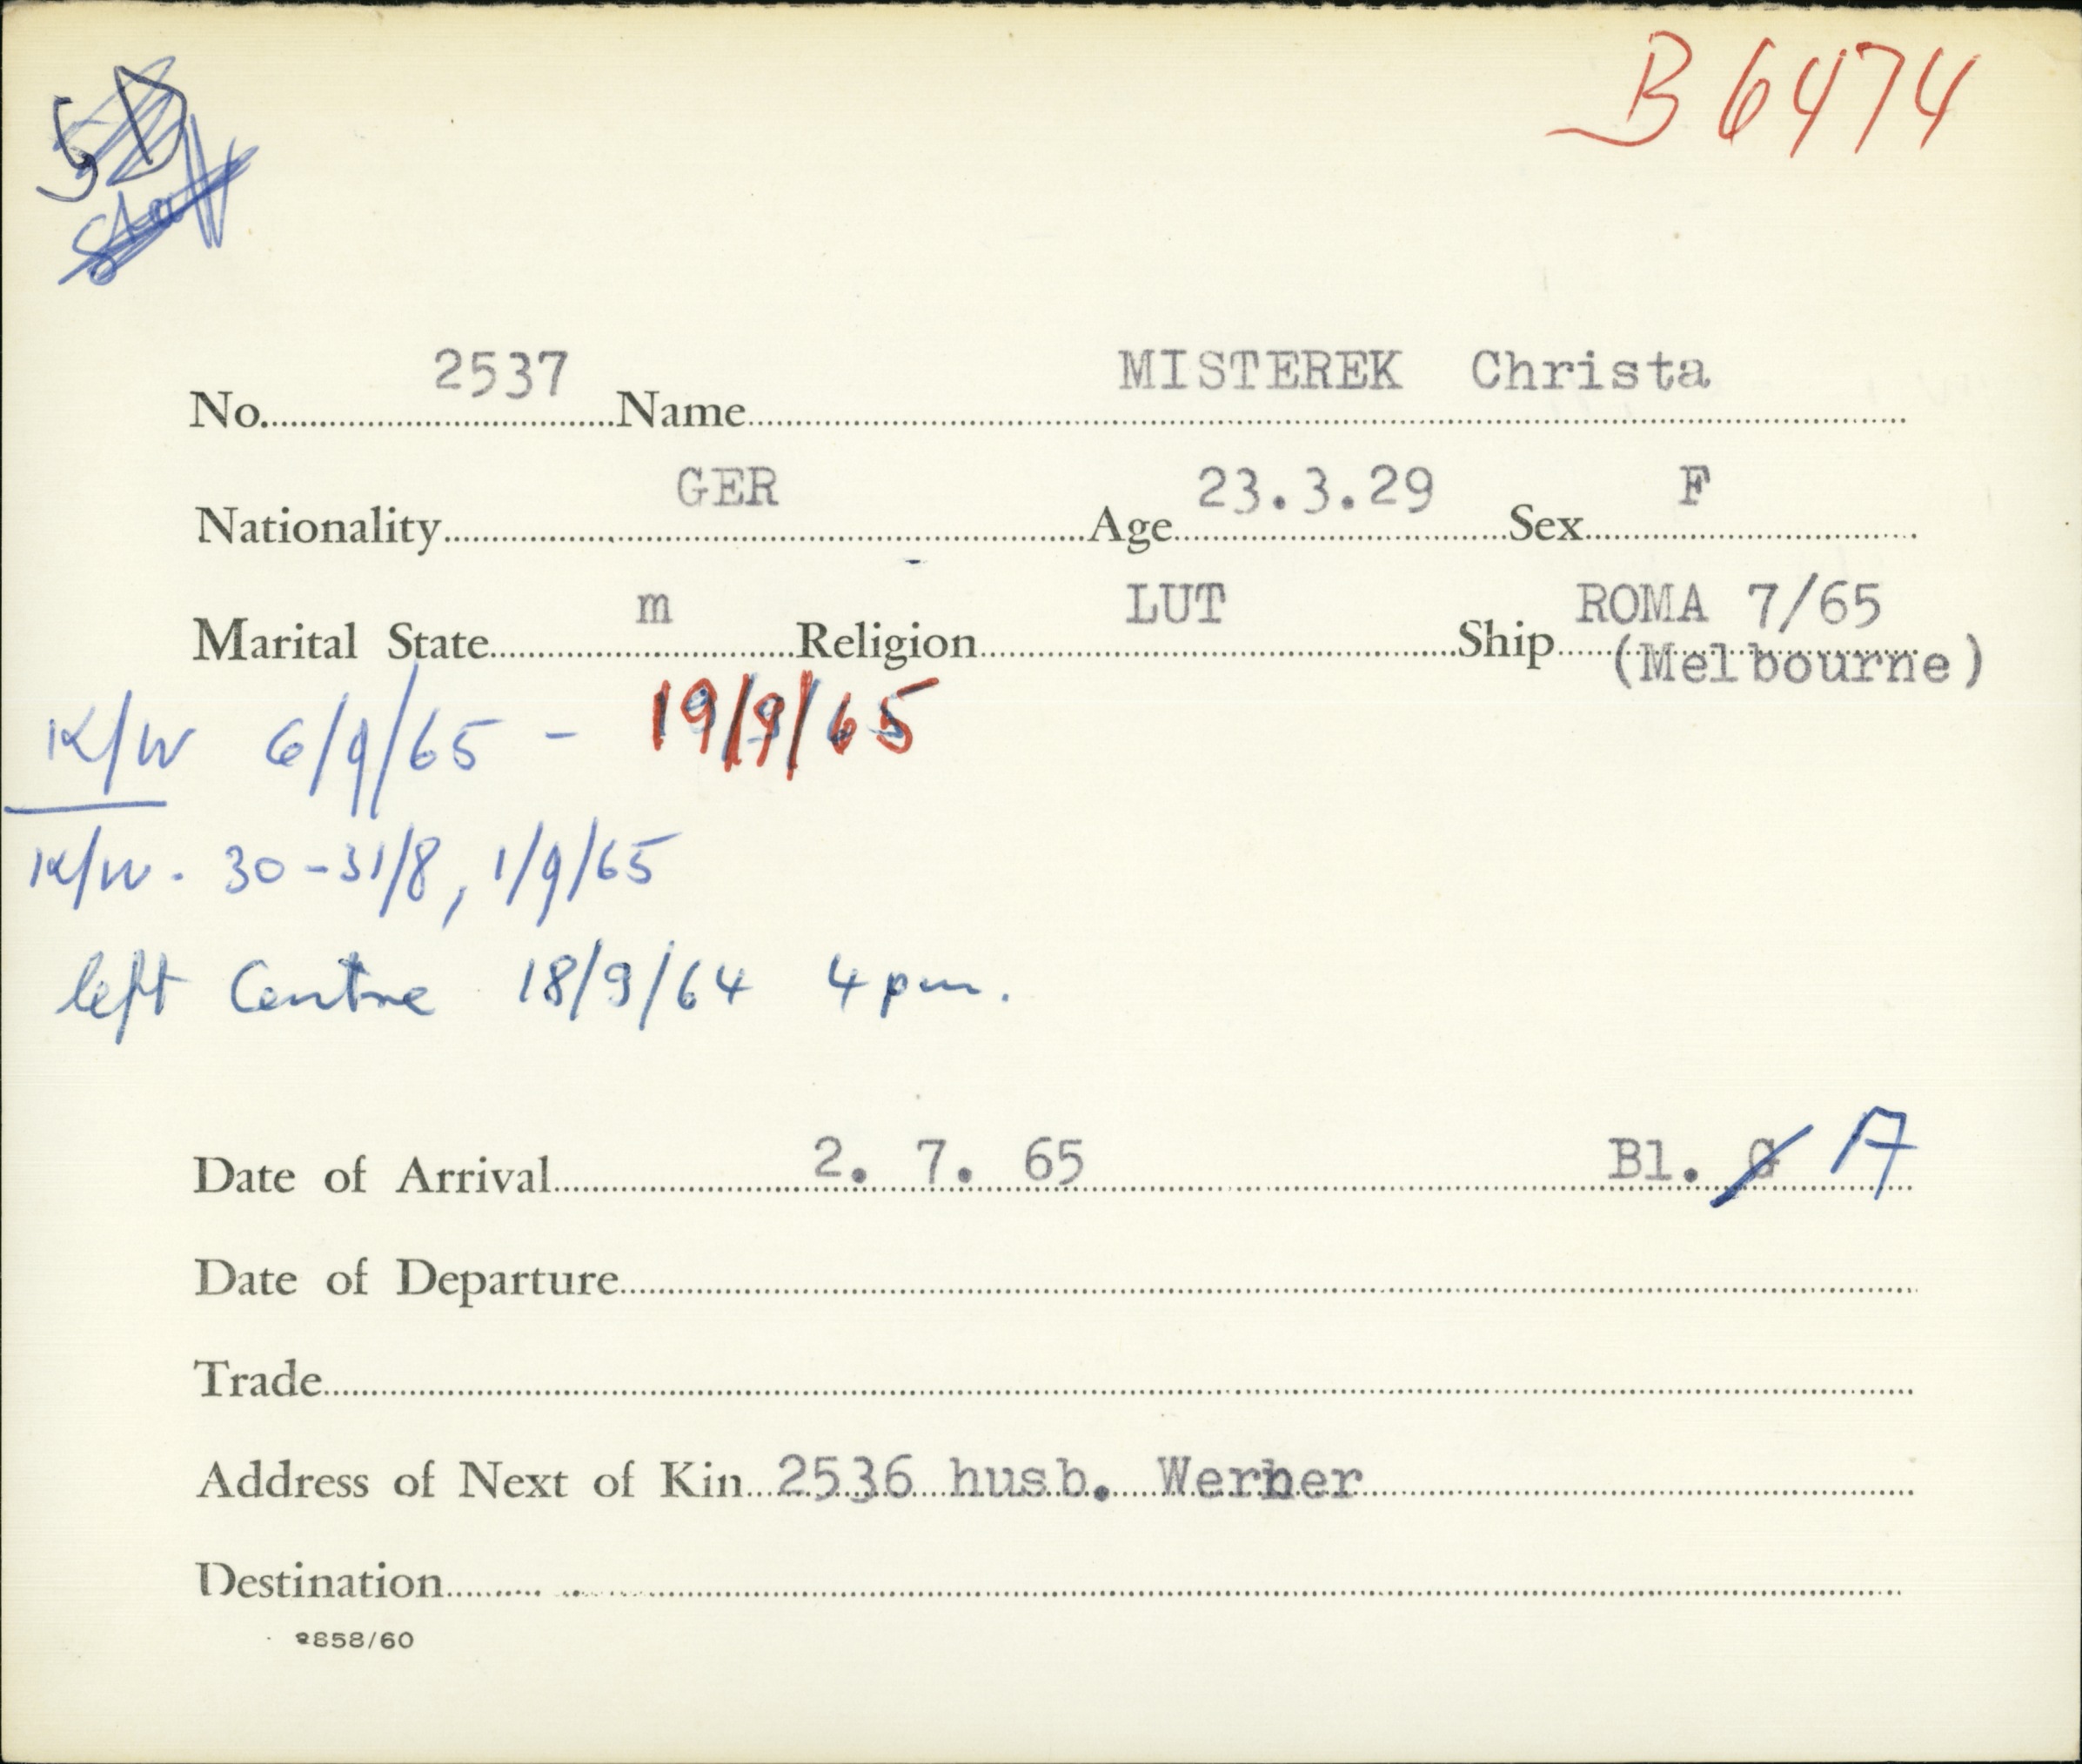 B 6474
5D
Staff
No. 2537 Name MISTEREK Christa
Nationality GER Age 23.3.29 Sex F
Marital State m Religion LUT Ship ROMA 7/65
(Melbourne)
K/W 6/9/65 - 19/9/65
K/W. 30-31/8, 1/9/65
left Centre 18/9/64 4 pm.
Date of Arrival 2. 7. 65 Bl. G A
Date of Departure
Trade
Address of Next of Kin 2536 husb. Werner
Destination
2858/60